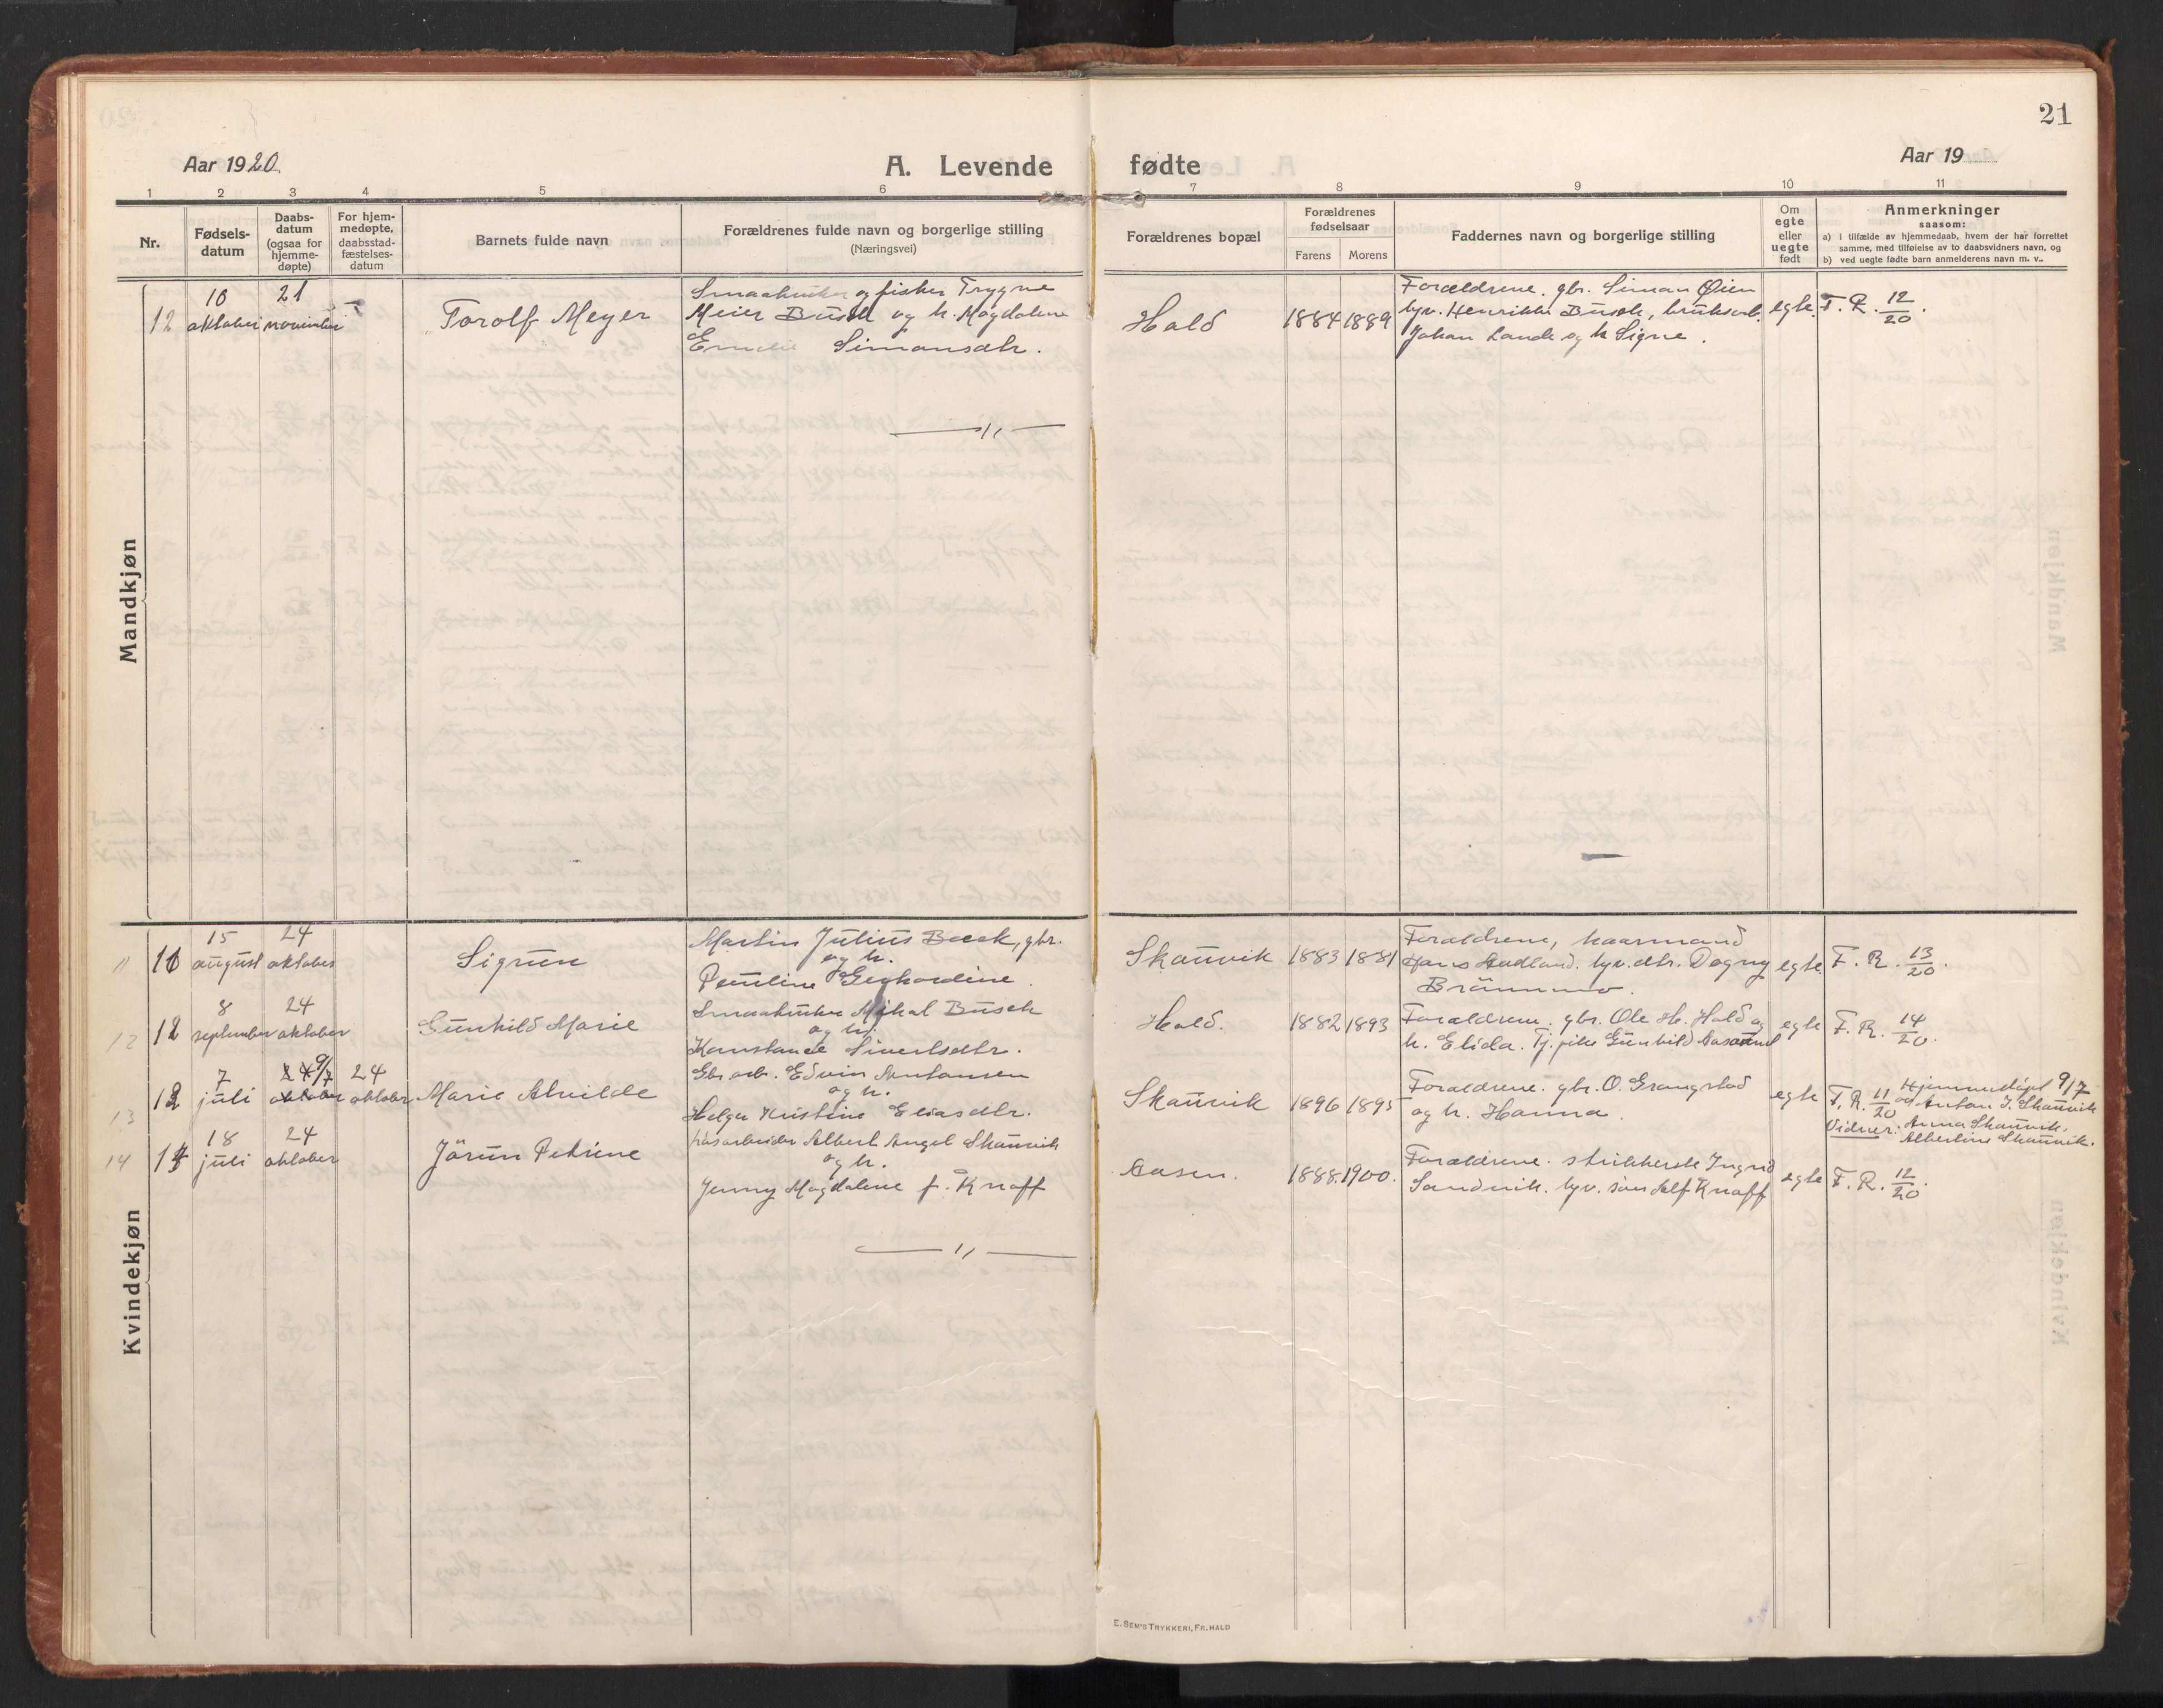 21
Aar 1920.
A. Levende fødte
Aar 19
1 2 3 4 5 6 7 8 9 10 11
Nr.
Fødsels-
datum
Daabs-
datum
(ogsaa for
hjemme-
døpte)
For hjem-
medøpte,
daabsstad-
fæstelses-
datum
Barnets fulde navn
Forældrenes fulde navn og borgerlige stilling
(Næringsvei)
Forældrenes bopæl
Forældrenes
fødselsaar
Farens Morens
Faddernes navn og borgerlige stilling
Om
egte
eller
uegte
født
Anmerkninger
saasom:
a) i tilfælde av hjemmedaab, hvem der har forrettet
samme, med tilføielse av to daabsvidners navn, og
b) ved uegte fødte barn anmelderens navn m. v..
Mandkjøn
12
10
oktober
21
november
Torolf Meyer
Smaabruker og fisker Trygve
Meier Busch og h. Magdalene
Emelie Simonsdtr.
Hald
1884 1889
Forældrene. gbr. Simon Øien
tyv. Henrikke Busch, bruksarb.
Johan Lande og h Signe.
egte.
F. R. 12/20.
— 11 —
Kvindekjøn
11
15
august
24
oktober
Sigrun
Martin Julius Beck, gbr.
og h.
Pauline Gerhardine
Skauvik
1883 1881
Forældrene, haarmand
Hans Aadland. tyv. dtr. Dagny
egte
F. R. 13/20.
12 12
8
september
24
oktober
Gunhild Marie
Smaabruker Mikal Busch
og h.
Konstance Sivertsdtr.
Hald.
1882 1893
Forældrene. gbr. Ole H. Hald og
h. Elida. Tj. pike Gunhild
egte
F. R. 14/20.
13
7
juli
24 9/7
oktober
24
oktober
Marie Alvilde
Gbr arb. Edvin Antonsen
og h.
Helga Kristine Eliasdtr.
Skauvik
1896 1895
Forældrene. gbr. O. Grangstad
og h. Hanna.
egte
F. R. 11/20
Hjemmedøpt 9/7
av Anton J. Skauvik
Vidner: Anna Skauvik,
Albertine Skauvik.
14 14
18
juli
24
oktober
Jörun Petrine
Løsarbeider Albert Angel Skauvik
og h.
Jenny Magdalene f. Knoff
Aasen.
1888. 1900.
Forældrene. strikkerske Ingrid
Sandvik. tyv. søn Alf Knoff
egte
F. R. 12/20.
— 11 —
E. SEM'S TRYKKERI, FR.HALD